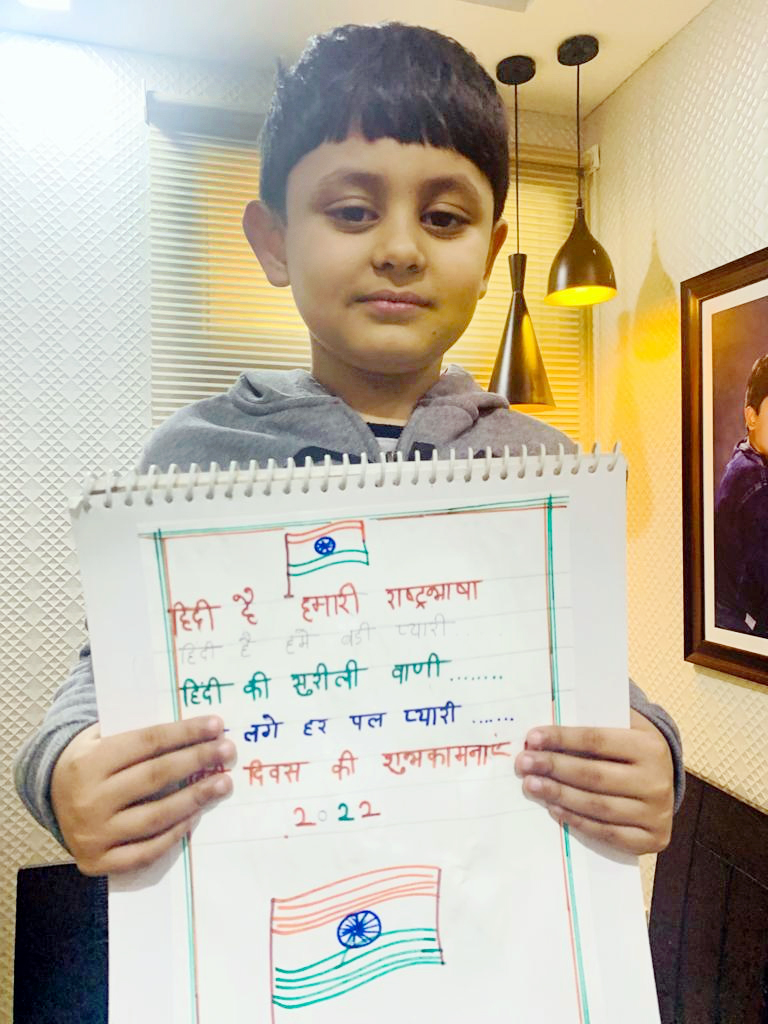 हिंदी है हमारी राष्ट्रभाषा
हिंदी है हमे बडी प्यारी.....
हिंदी की सुरीली वाणी........
लगे हर पल प्यारी ......
दिवस की शुभकामनाएं
2022